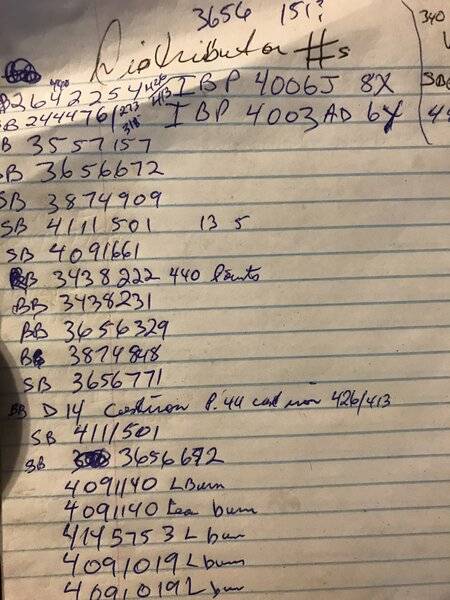 3656 151?
340
Distributor #s
2642254 426 H/B IBP 4006J 8X
SB 244476/273 318 IBP 4003AD 6X
B 3557157
SB 3656672
SB 3874909
SB 4111501 13 5
SB 4091661
BB 3438222 440
BB 3438231
BB 3656329
BB 3874848
SB 3656771
BB D14 cast iron P.44 cast iron 426/413
SB 4111501
SB 3656672
4091140 L Burn
4091140 Lea burn
4145753 L bur
4091019 L burn
4091019 L bur